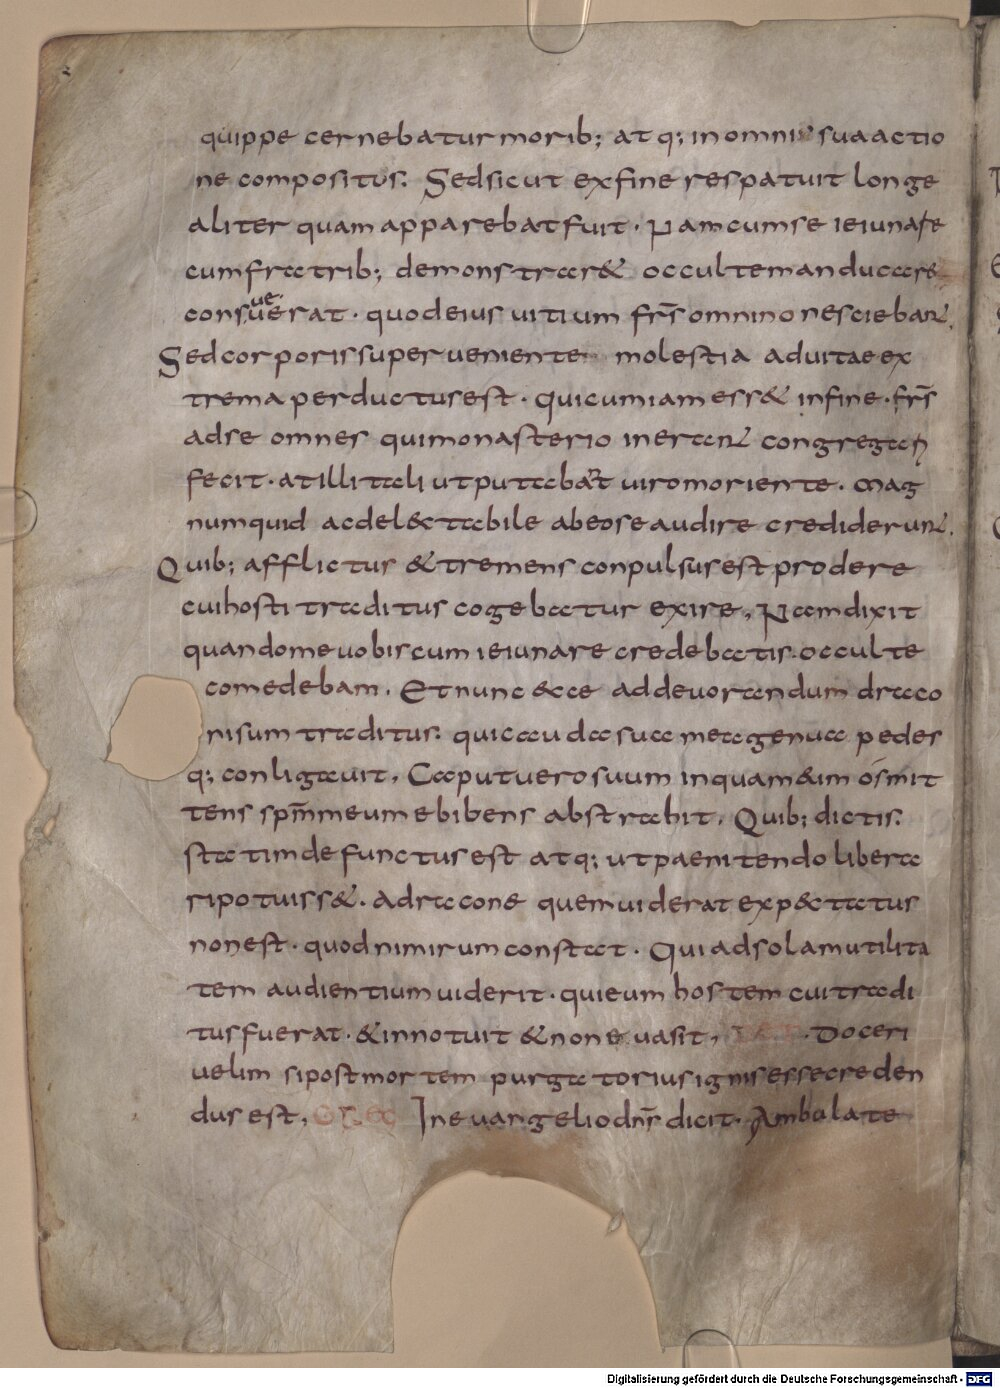 quippe cernebatur morib; atq; in omni sua actio
ne compositus. Sed sicut ex fine res patuit longe
aliter quam apparebat fuit. Nam cum se ieiunare
cum fratrib; demonstrar& occulte manducare
consuuerat. quod eius uitium frs omnino nesciebant.
ue
Sed corporis superueniente molestia ad uitae ex
trema perductus est. Qui cum iam ess& in fine. frs
ad se omnes qui monasterio inerant congregari
fecit. at illi tali ut putabant uiro moriente. mag
num quid ac del&tabile ab eo se audire crediderunt.
Quib; afflictus & tremens conpulsus est prodere
cui hosti traditus cogebatur exire. Nam dixit
quando me uobiscum ieiunare credebatis. occulte
comedebam. Et nunc &ce ad deuorandum draco
ni sum traditus. qui cauda sua mea genua pedes
q; conligauit. Caput uero suum in quam &im os mit
tens spm meum ebibens abstrahit. Quib; dictis.
statim defunctus est atq; ut paenitendo libera
ri potuiss&. a dracone quem uiderat exp&tatus
non est. quod nimirum constat. Qui ad solam utilita
tem audientium uiderit. qui eum hostem cui tradi
tus fuerat. & innotuit & non euasit. Doceri
uelim si post mortem purgatorius ignis esse creden
dus est. In euangelio dns dicit. Ambulate
Digitalisierung gefördert durch die Deutsche Forschungsgemeinschaft - DFG